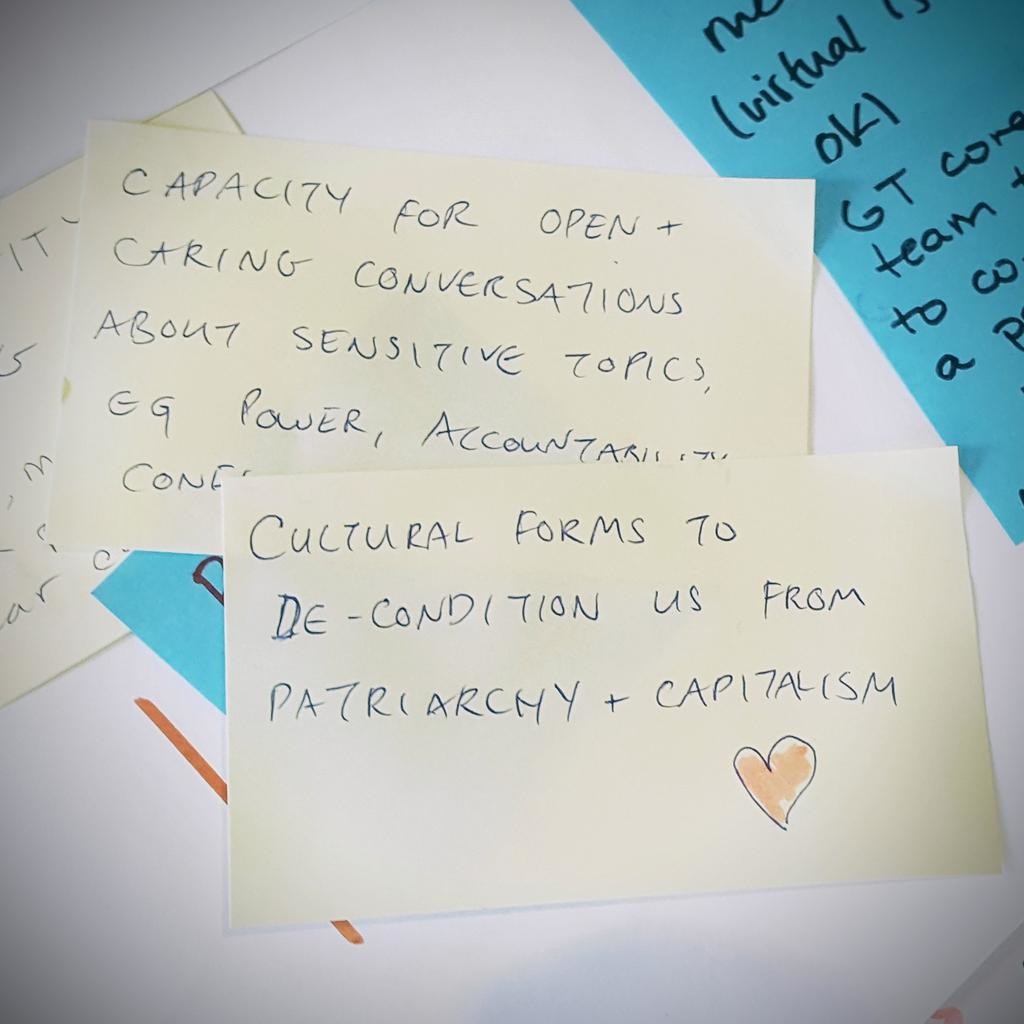 CAPACITY FOR OPEN +
CARING CONVERSATIONS
ABOUT SENSITIVE TOPICS,
EG POWER, ACCOUNTABILITY
CULTURAL FORMS TO
DE-CONDITION US FROM
PATRIARCHY + CAPITALISM
(virtual is
OK)
GT core
team
to
a